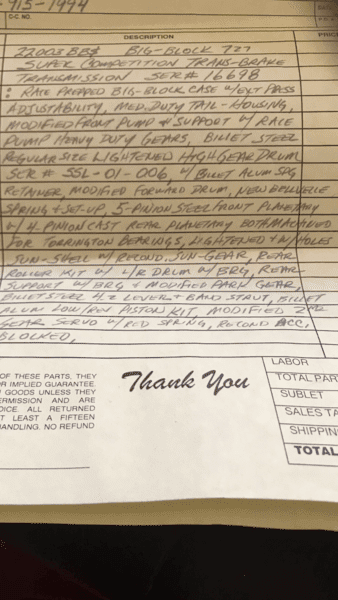 -915-1994
C.C. NO.
DESCRIPTION
PRIC
22003BBS BIG-BLOCK 727
SUPER COMPETITION TRANS-BRAKE
TRANSMISSION SER# 16698
: RACE PREPPED BIG-BLOCK CASE W/EXT PRESS
ADJUSTABILITY, MED. DUTY TAIL-HOUSING,
MODIFIED FRONT PUMP & SUPPORT W/ RACE
PUMP HEAVY DUTY GEARS, BILLET STEEL
REGULAR SIZE LIGHTENED HIGH GEAR DRUM
SER # SSL-01-006, W/ BILET ALUM SPG
RETAINER, MODIFIED FORWARD DRUM, NEW BELLVELLE
SPRING & SET-UP, 5-PINION STEEL FRONT PLANETARY
W/ 4-PINION CAST REAR PLANETARY BOTH MACHINED
FOR TORRINGTON BEARINGS, LIGHTENED HOLES
SUN-SHELL W/ RECOND. SUN-GEAR, REAR
ROLLER KIT W/ L/R DRUM W/BRG, REAR
SUPPORT W/ BRG & MODIFIED PARK GEAR,
BILLET STEEL LEVER & BAND STRUT, BILLET
ALUM LOW/REV PISTON KIT, MODIFIED 2ND
GEAR SERVO W/RED SPRING, RECOND ACC.
BLOCKED,
OF THESE PARTS, THEY
OR IMPLIED GUARANTEE.
GOODS UNLESS THEY
ERMISSION AND ARE
OICE. ALL RETURNED
T LEAST A FIFTEEN
HANDLING. NO REFUND
Thank You
LABOR
TOTAL PAR
SUBLET
SALES TA
SHIPPIN
TOTAL